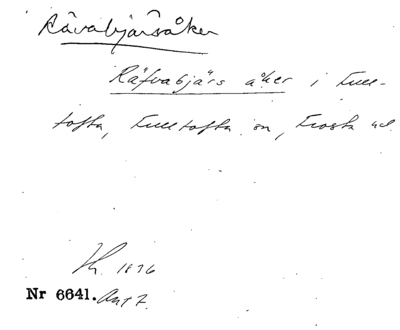 Rävabjärsåker
Räfvabjärs åker i Full-
tofta, Fulltofta sn, Frosta hd
1896
Nr 6641. Ant 7.